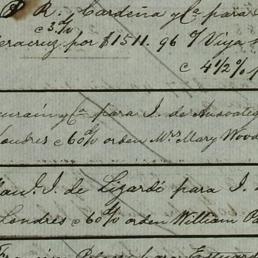 P R. Cardeña y Ca. para
c 3 %
Veracruz por $1511. 96 7 Viya
c 4½ %
y Ca. para J. de Ansoateg
Londres c 60 d/ orden Mrs. Mary Wood
Manl. J. de Lizardó para J.
Londres c 60 d/ orden William Pa